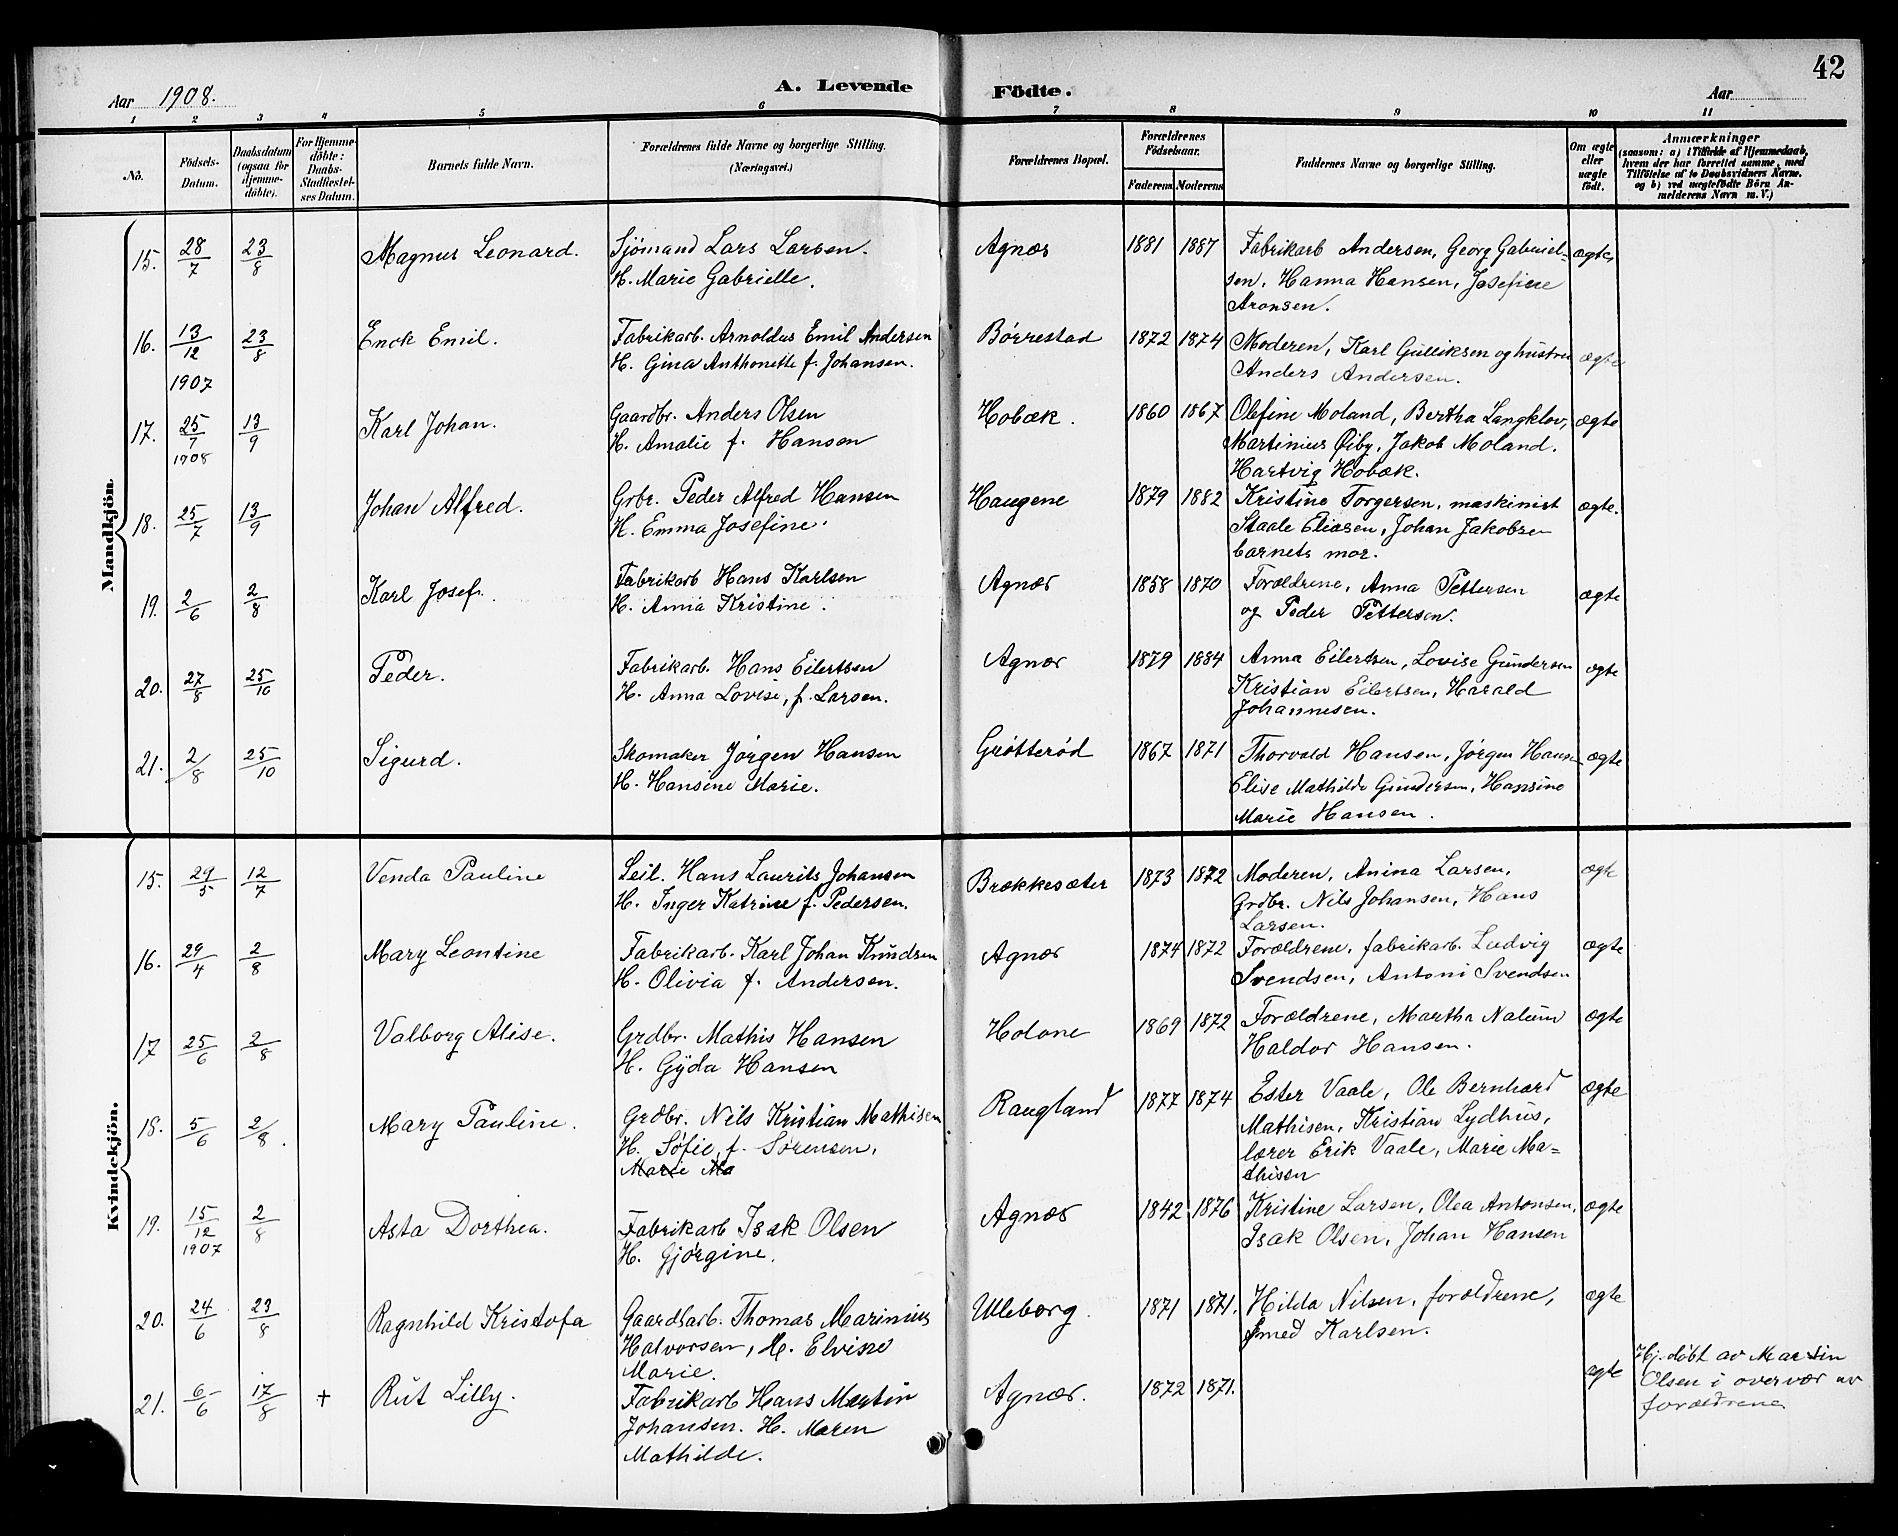 42
Aar 1908.
A. Levende Födte.
Aar
1 2 3 4 5 6 7 8 9 10 11
No.
Födsels-Datum.
Daabsdatum (ogsaa for Hjemme-döbte).
For Hjemme-döbte: Daabs-Stadfæstel-ses Datum.
Barnets fulde Navn.
Forældrenes fulde Navne og borgerlige Stilling. (Næringsvei.)
Forældrenes Bopæl.
Forældrenes Födselsaar.
Faderens Moderens
Faddernes Navne og borgerlige Stilling.
Om ægte eller uægte födt.
Anmærkninger
(saasom: a) i Tilfælde af Hjemmedaab, hvem der har forrettet samme, med Tilföielse af to Daabsvidners Navne, og b) ved uægtefödte Börn An-melderens Navn m. V.)
Mandkjön.
15. 28/7 23/8 Magnus Leonard. Sjömand Lars Larsen. Agnæs 1881 1887 Fabrikarb Andersen, Georg Gabriel- ægte
H. Marie Gabrielle. sen, Hanna Hansen, Josefine
Aronsen.
16. 13/12 1907 23/8 Enok Emil. Fabrikarb. Arnoldus Emil Andersen Børrestad 1872 1874 Moderen, Karl Gulliksen og hustru ægte
H. Gina Anthonette f. Johansen. Anders Andersen.
17. 25/7 1908 13/9 Karl Johan. Gaardbr. Anders Olsen Hobæk. 1860 1867 Olefine Moland, Bertha Langklov, ægte
H. Amalie f. Hansen Martinius Øiby, Jakob Moland.
Hartvig Hobæk.
18. 25/7 13/9 Johan Alfred. Grbr. Peder Alfred Hansen Haugene 1879 1882 Kristine Torgersen, maskinist ægte.
H. Emma Josefine. Staale Eliasen, Johan Jakobsen
barnets mor.
19. 2/6 2/8 Karl Josef. Fabrikarb Hans Karlsen Agnæs 1858 1870 Forældrene, Anna Pettersen ægte
H. Anna Kristine. og Peder Pettersen.
20. 27/8 25/10 Peder. Fabrikarb. Hans Eilertsen Agnæs 1879 1884 Anna Eilertsen, Lovise Gundersen ægte
H. Anna Lovise, f. Larsen. Kristian Eilertsen, Harald
Johannesen.
21. 2/8 25/10 Sigurd. Skomaker Jørgen Hansen Grøtterød 1867 1871 Thorvald Hansen, Jørgen Hansen ægte
H. Hansine Marie. Elise Mathilde Gundersen, Hansine
Marie Hansen.
Kvindekjön.
15. 29/5 12/7 Venda Pauline Seil. Hans Laurits Johansen Brækkesæter 1873 1872 Moderen, Anina Larsen, ægte
H. Inger Katrine f. Pedersen. Grdbr. Nils Johansen, Hans
Larsen.
16. 29/4 2/8 Mary Leontine Fabrikarb. Karl Johan Knudsen Agnæs 1874 1872 Forældrene, fabrikarb. Ludvig ægte
H. Olivia f. Andersen. Svendsen, Antoni Svendsen
17 25/6 2/8 Valborg Alise. Grdbr. Mathis Hansen Holane 1869 1872 Forældrene, Martha Nalum ægte
H. Gyda Hansen Haldor Hansen.
18. 5/6 2/8. Mary Pauline. Grdbr. Nils Kristian Mathisen Raugland 1877 1874 Ester Vaale, Ole Bernhard ægte
H. Sofie, f. Sørensen, Mathisen, Kristian Lydhus,
Marie Ma lærer Erik Vaale, Marie Ma=
thisen
19. 15/12 1907 2/8 Asta Dorthea. Fabrikarb Isak Olsen Agnæs 1842 1876 Kristine Larsen, Olea Antonsen, ægte
H. Gjørgine. Isak Olsen, Johan Hansen
20. 24/6 23/8 Ragnhild Kristofa Gaardsarb. Thomas Marinius Ulleborg. 1871 1871. Hilda Nilsen, forældrene, ægte
Halvorsen, H. Elvine Smed Karlsen.
Marie.
21. 6/6 17/8 + Rut Lilly. Fabrikarb Hans Martin Agnæs. 1872 1871. ægte Hj. döbt av Martin
Johansen. H. Maren Olsen i overvær av
Mathilde. forældrene